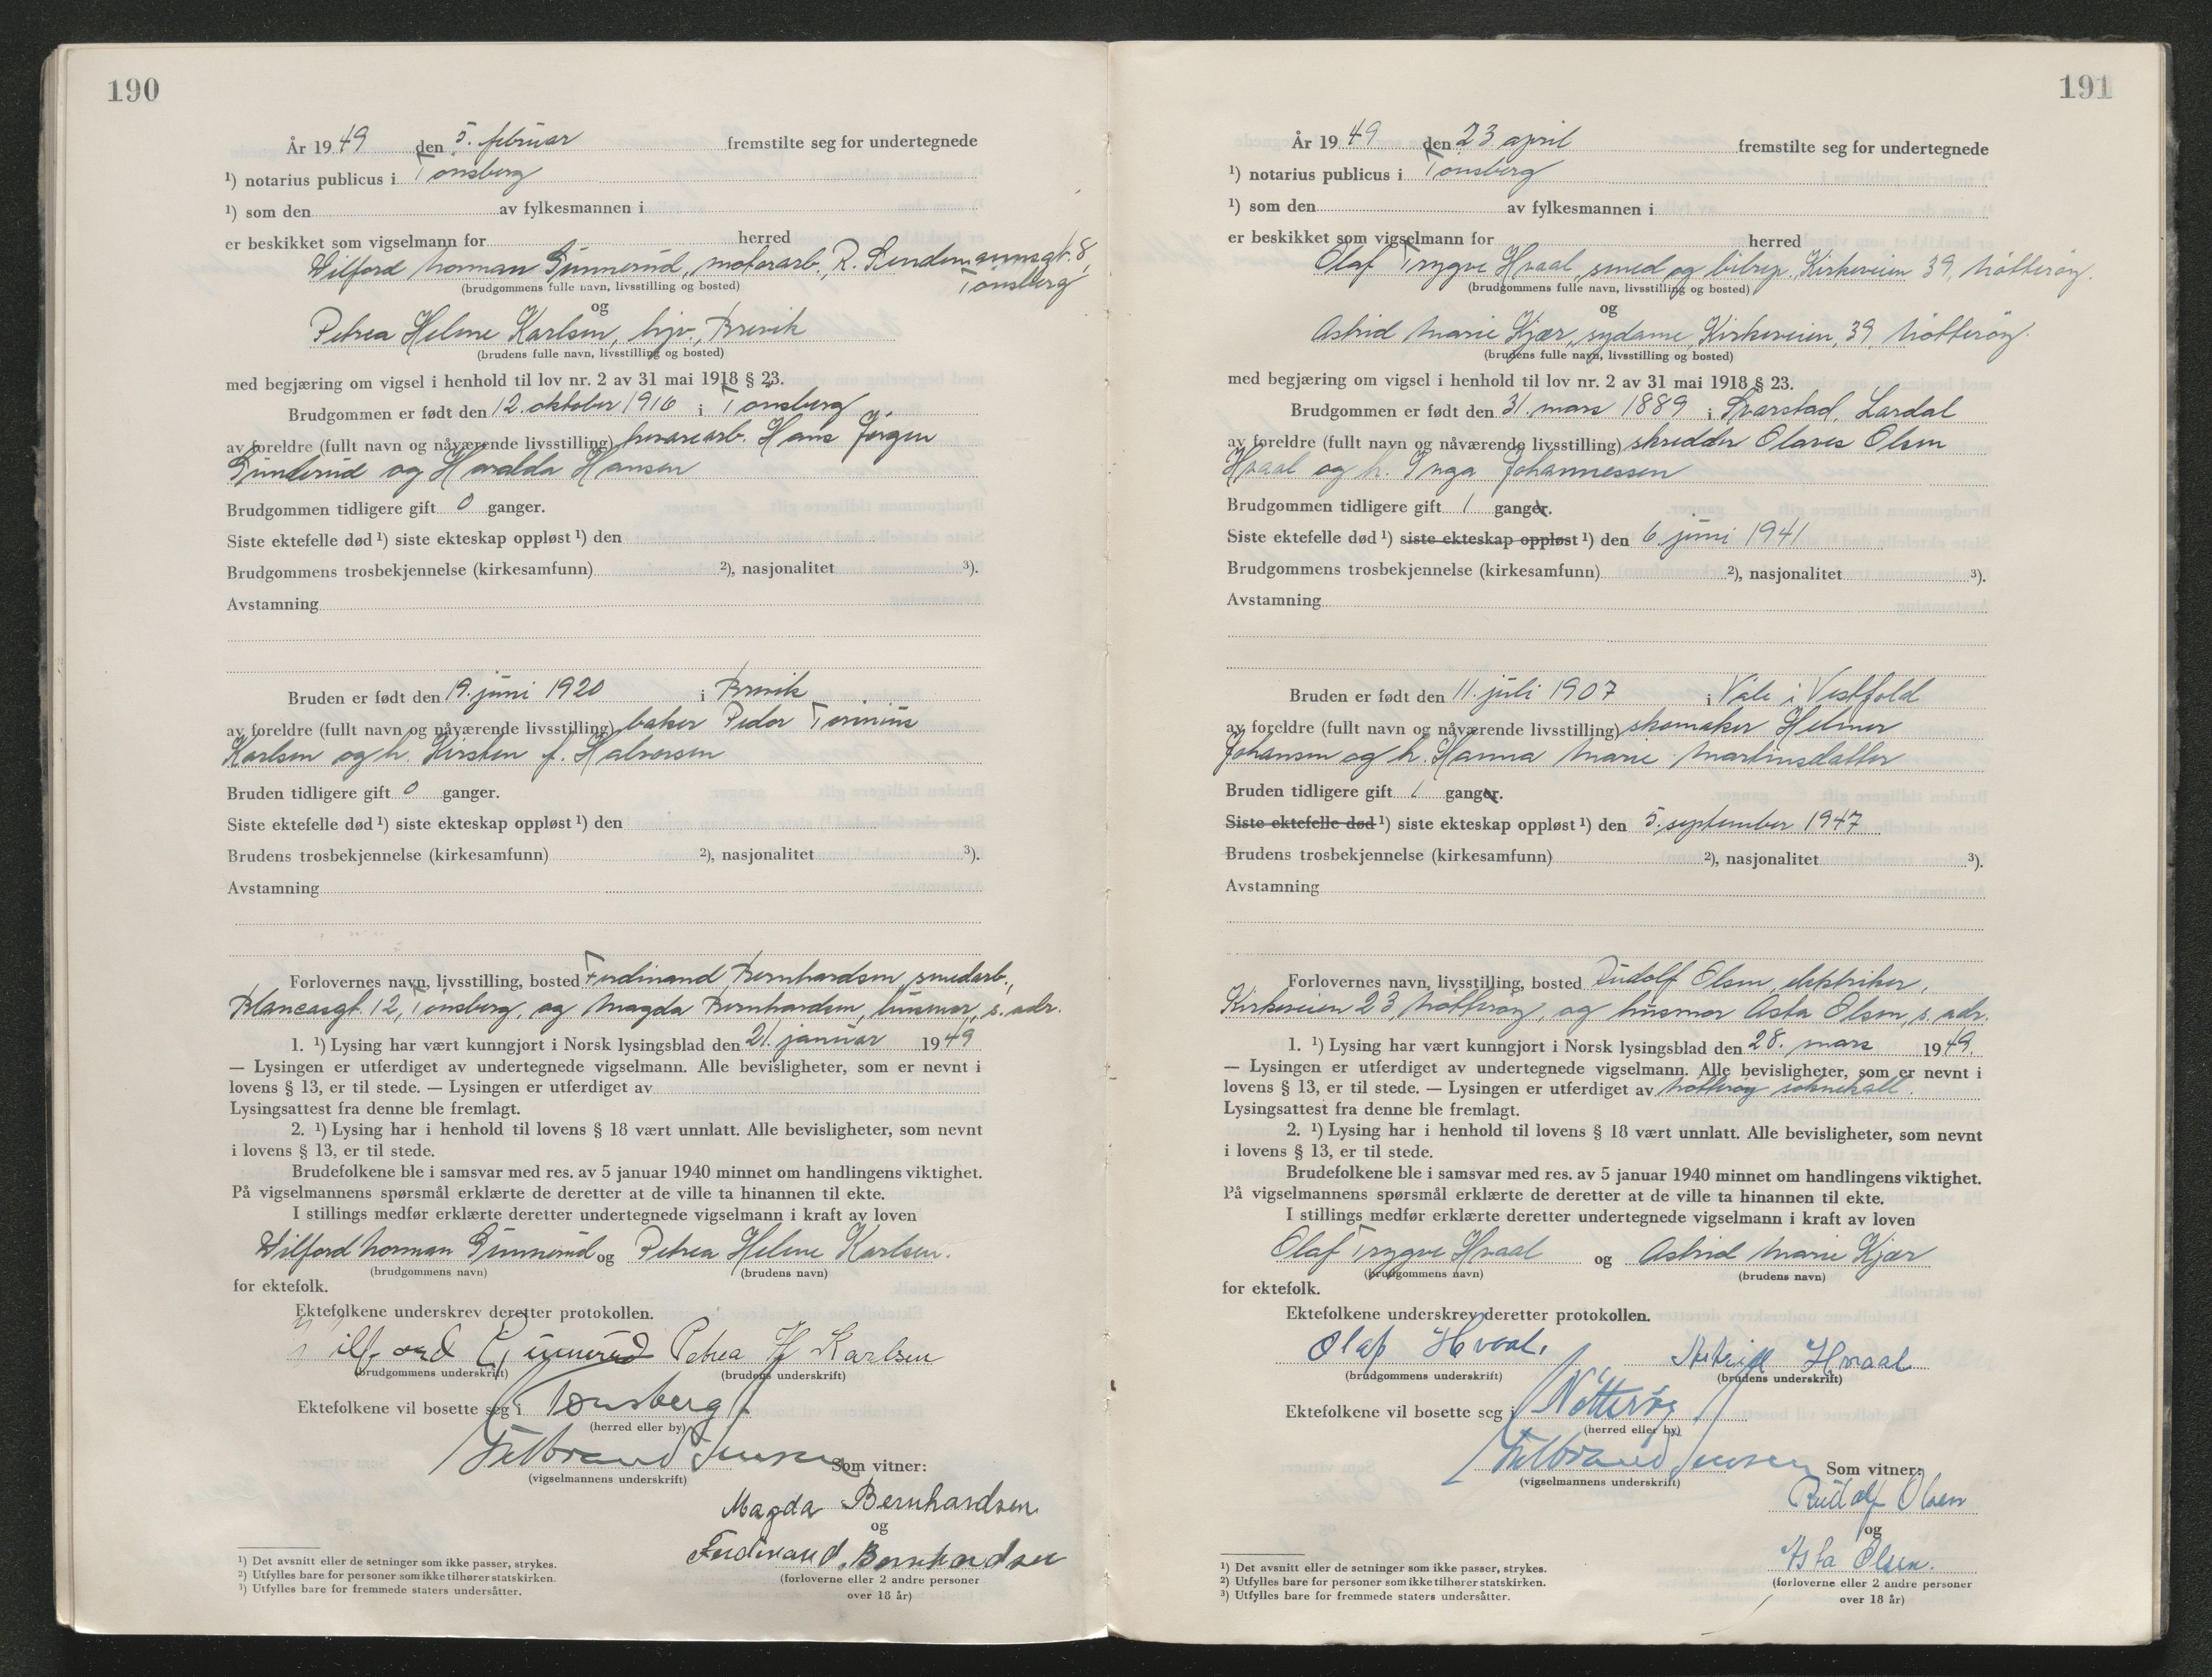 190
År 1949 den 5. februar fremstilte seg for undertegnede
¹) notarius publicus i Tønsberg
¹) som den av fylkesmannen i
er beskikket som vigselmann for herred
Wilford Norman Gunnerud, motorarb., R. Lindemannsgt. 8,
Tønsberg
(brudgommens fulle navn, livsstilling og bosted)
og
Petrea Helene Karlsen, hjv., Brevik
(brudens fulle navn, livsstilling og bosted)
med begjæring om vigsel i henhold til lov nr. 2 av 31 mai 1918 § 23.
Brudgommen er født den 12. oktober 1916 i Tønsberg
av foreldre (fullt navn og nåværende livsstilling) Hans Jørgen
Gunderud og Haralda Hansen
Brudgommen tidligere gift 0 ganger.
Siste ektefelle død ¹) siste ekteskap oppløst ¹) den
Brudgommens trosbekjennelse (kirkesamfunn) ²), nasjonalitet ³).
Avstamning
Bruden er født den 19. juni 1920 i Brevik
av foreldre (fullt navn og nåværende livsstilling) baker Peder Torinius
Karlsen og h. Kirsten f. Halvorsen
Bruden tidligere gift 0 ganger.
Siste ektefelle død ¹) siste ekteskap oppløst ¹) den
Brudens trosbekjennelse (kirkesamfunn) ²), nasjonalitet ³).
Avstamning
Forlovernes navn, livsstilling, bosted Ferdinand Bernhardsen, smedarb.,
Blancasgt. 12, Tønsberg, og Magda Bernhardsen, husmor, s. adr.
1. ¹) Lysing har vært kunngjort i Norsk lysingsblad den 21. januar 1949
— Lysingen er utferdiget av undertegnede vigselmann. Alle bevisligheter, som er nevnt i
lovens § 13, er til stede. — Lysingen er utferdiget av
Lysingsattest fra denne ble fremlagt.
2. ¹) Lysing har i henhold til lovens § 18 vært unnlatt. Alle bevisligheter, som nevnt
i lovens § 13, er til stede.
Brudefolkene ble i samsvar med res. av 5 januar 1940 minnet om handlingens viktighet.
På vigselmannens spørsmål erklærte de deretter at de ville ta hinannen til ekte.
I stillings medfør erklærte deretter undertegnede vigselmann i kraft av loven
Wilford Norman Gunnerud og Petrea Helene Karlsen.
(brudgommens navn) (brudens navn)
for ektefolk.
Ektefolkene underskrev deretter protokollen.
Wilford Gunnerud Petrea H Karlsen
(brudgommens underskrift) (brudens underskrift)
Ektefolkene vil bosette seg i Tønsberg
(herred eller by)
Jensen Som vitner:
(vigselmannens underskrift)
Magda Bernhardsen
og
Ferdinand Bernhardsen
(forloverne eller 2 andre personer
over 18 år)
¹) Det avsnitt eller de setninger som ikke passer, strykes.
²) Utfylles bare for personer som ikke tilhører statskirken.
³) Utfylles bare for fremmede staters undersåtter.
191
År 1949 den 23 april fremstilte seg for undertegnede
¹) notarius publicus i Tønsberg
¹) som den av fylkesmannen i
er beskikket som vigselmann for herred
Olaf Trygve Hvaal, smed og bilrep., Kirkeveien 39, Nøtterøy.
(brudgommens fulle navn, livsstilling og bosted)
og
Astrid Marie Kjær, sydame, Kirkeveien, 39, Nøtterøy.
(brudens fulle navn, livsstilling og bosted)
med begjæring om vigsel i henhold til lov nr. 2 av 31 mai 1918 § 23.
Brudgommen er født den 31. mars 1889 i Svarstad, Lardal
av foreldre (fullt navn og nåværende livsstilling) skredder Olaves Olsen
Hvaal og h. Inga Johannessen
Brudgommen tidligere gift 1 ganger.
Siste ektefelle død ¹) siste ekteskap oppløst ¹) den 6. juni 1941
Brudgommens trosbekjennelse (kirkesamfunn) ²), nasjonalitet ³).
Avstamning
Bruden er født den 11. juli 1907 i Våle i Vestfold
av foreldre (fullt navn og nåværende livsstilling) skomaker Helmer
Johansen og h. Hanna Marie Martinsdatter
Bruden tidligere gift 1 ganger.
Siste ektefelle død ¹) siste ekteskap oppløst ¹) den 5. september 1947
Brudens trosbekjennelse (kirkesamfunn) ²), nasjonalitet ³).
Avstamning
Forlovernes navn, livsstilling, bosted Rudolf Olsen, elektriker,
Kirkeveien 23, Nøtterøy, og husmor Asta Olsen, s. adr.
1. ¹) Lysing har vært kunngjort i Norsk lysingsblad den 28. mars 1949.
— Lysingen er utferdiget av undertegnede vigselmann. Alle bevisligheter, som er nevnt i
lovens § 13, er til stede. — Lysingen er utferdiget av Nøtterøy soknekall.
Lysingsattest fra denne ble fremlagt.
2. ¹) Lysing har i henhold til lovens § 18 vært unnlatt. Alle bevisligheter, som nevnt
i lovens § 13, er til stede.
Brudefolkene ble i samsvar med res. av 5 januar 1940 minnet om handlingens viktighet.
På vigselmannens spørsmål erklærte de deretter at de ville ta hinannen til ekte.
I stillings medfør erklærte deretter undertegnede vigselmann i kraft av loven
Olaf Trygve Hvaal og Astrid Marie Kjær
(brudgommens navn) (brudens navn)
for ektefolk.
Ektefolkene underskrev deretter protokollen.
Olaf Hvaal. Astrid Hvaal
(brudgommens underskrift) (brudens underskrift)
Ektefolkene vil bosette seg i Nøtterøy
(herred eller by)
Jensen Som vitner:
(vigselmannens underskrift)
Rudolf Olsen
og
Asta Olsen.
(forloverne eller 2 andre personer
over 18 år)
¹) Det avsnitt eller de setninger som ikke passer, strykes.
²) Utfylles bare for personer som ikke tilhører statskirken.
³) Utfylles bare for fremmede staters undersåtter.